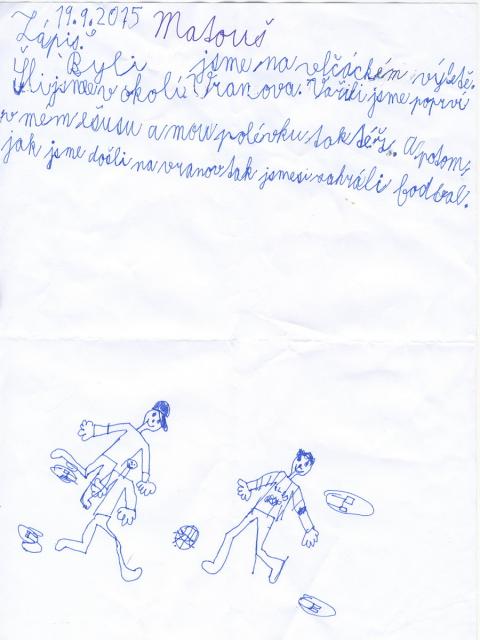 19.9.2015 Matouš
Zápis:
Byli jsme na vlčáckém výletě.
Šli jsme v okolí Vranova. Vařili jsme poprví
v mem ešusu a mou polévku tak též. A potom,
jak jsme došli na vranov tak jsmesi zahráli fodbal.